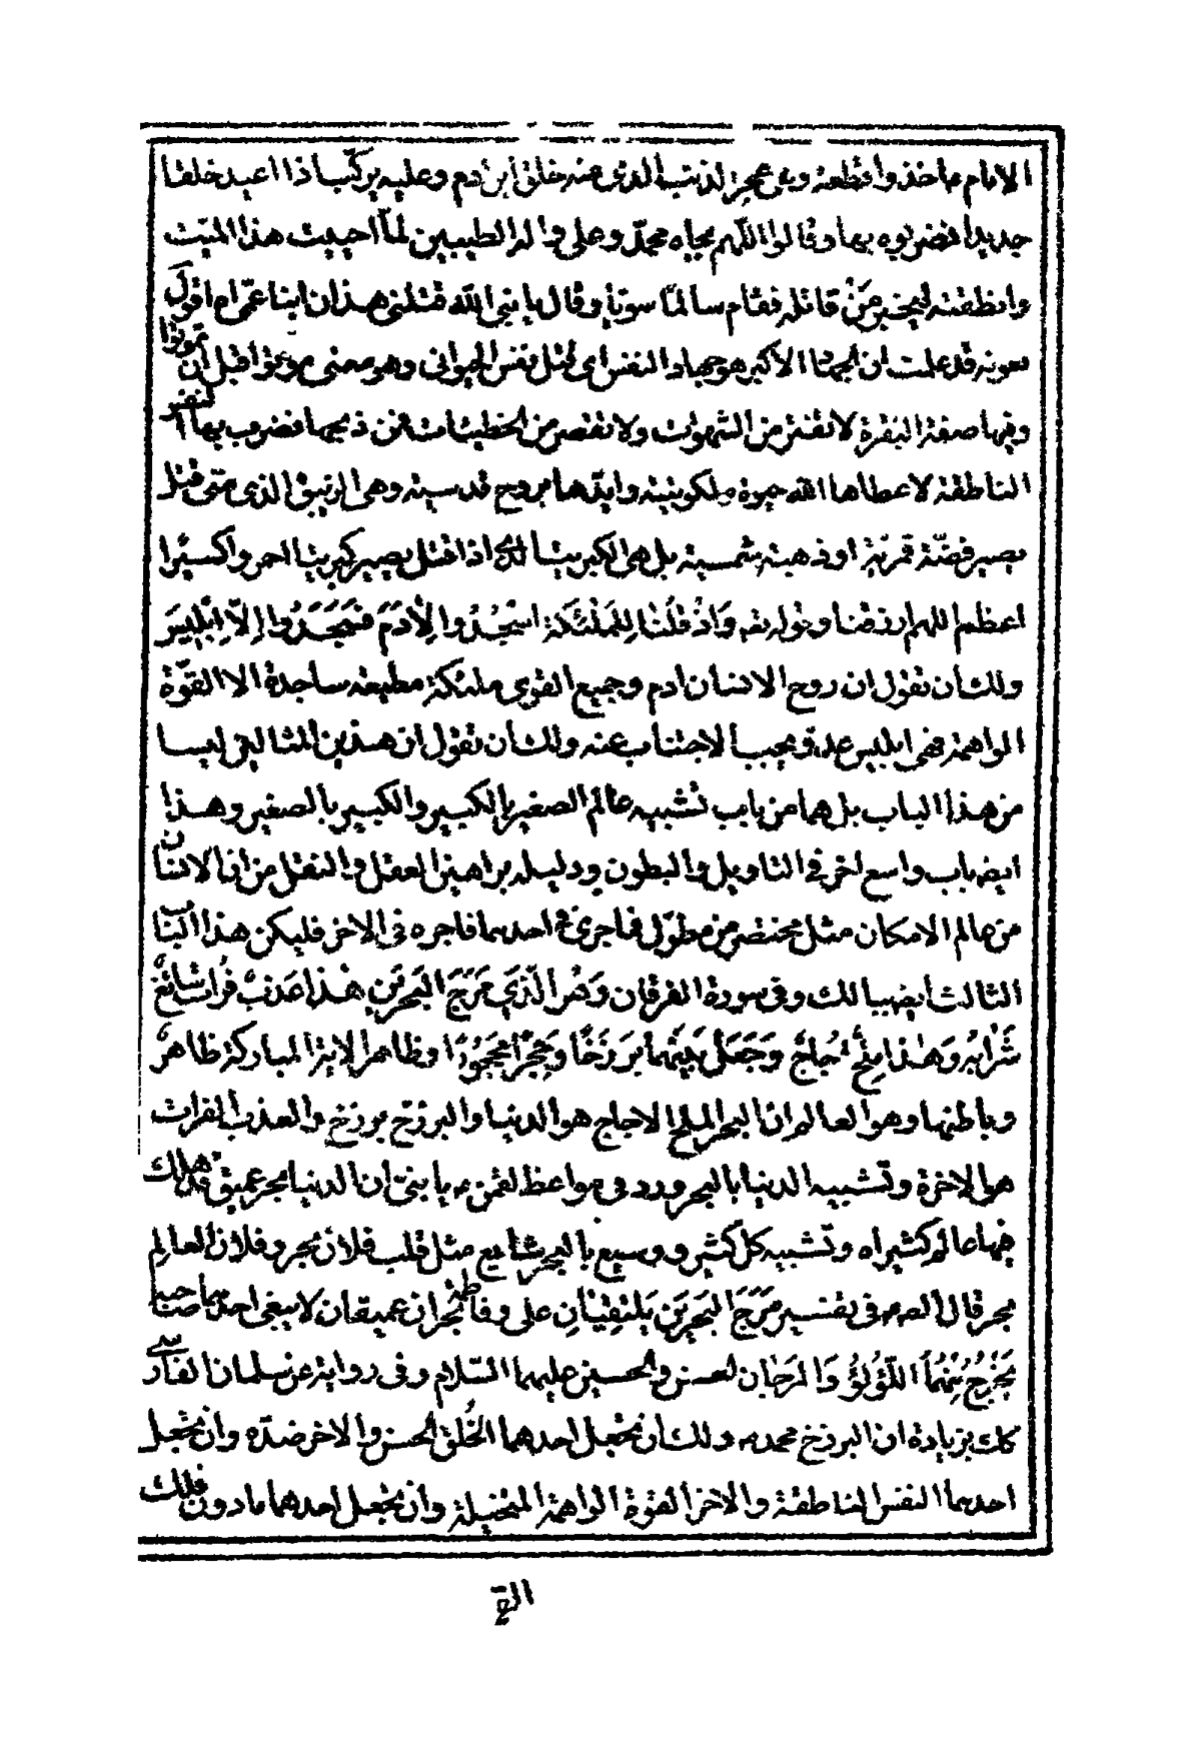 الامام ما خذوا قطعة وهى عجز الذنب الذى منه خلق ابن ادم وعليه يركب اذا اعيد خلقا
جديدا فضربوه بها وقالوا اللهم بجاه محمد وعلى واله الطيبين لما احييت هذا الميت
وانطقته ليخبر عن قاتله فقام سالما سويا وقال يا نبى الله قتلنى هذان ابنا عمى ام اقول
بعونه قد علمت ان الجهاد الاكبر هو جهاد النفس اى قتل نفس الحيوانى وهو معنى موتوا قبل ان تموتوا
وفيها صفة البقرة لا تفتر من الشهوات ولا تقصر من الخطيئات فمن ذبحها فضرب بها النفس
الناطقة لاعطاها الله حيوة ملكوتية وايدها بروح قدسية وهى الزيبق الذى متى قتل
يصير فضة قمرية او ذهبية شمسية بل هى الكبريت اذا قتل يصير كبريتا احمر واكسيرا
اعظم اللهم ارزقنا وقوله تعه وَاِذْ قُلْنَا لِلمَلٰئِكَةِ اسْجُدُوا لِآدَمَ فَسَجَدُوا اِلَّا اِبْلِيسَ
ولك ان تقول ان روح الانسان ادم وجميع القوى ملئكة مطيعة ساجدة الا القوة
الواهمة فهى ابليس عدو يجب الاجتناب عنه ولك ان تقول ان هذين المثالين ليسا
من هذا الباب بل هما من باب تشبيه عالم الصغير بالكبير والكبير بالصغير وهذا
ايضه باب واسع اخر فى التاويل والبطون ودليله براهين العقل والنقل من ان الانسان
من عالم الامكان مثل مختصر من مطول فما جرى فى احدهما فاجره فى الاخر فليكن هذا البيان
الثالث ايضه بيالك وفى سورة الفرقان وَهُوَ الَّذِي مَرَجَ البَحْرَينِ هٰذا عَذْبٌ فُراتٌ سائِغٌ
شَرابُهُ وَهٰذا مِلْحٌ اُجاجٌ وَجَعَلَ بَيْنَهُما بَرزَخًا وَحِجْرًا مَحْجُورًا فظاهر الاية المباركة ظاهر
وباطنها وهو العالم ان البحر الملح الاجاج هو الدنيا والبرزخ برزخ والعذب الفرات
هو الاخرة وتشبيه الدنيا بالبحر ورد فى مواعظ لقمن يا بنى ان الدنيا بحر عميق قد هلك
فيها عالم كثير اه وتشبيه كل كثير ووسيع بالبحر شايع مثل قلب فلان بحر وفلان العالم
بحر قال الصه فى تفسير مَرَجَ البَحرَينِ يَلتَقِيانِ على وفاطمة بحران عميقان لا يبغى احدهما صاحبه
يَخْرُجُ مِنْهُمَا اللُّؤْلُؤُ وَالمَرجان الحسن والحسين عليهما السلام وفى رواية عن سلمان الفارسى
كك بزيادة ان البرزخ محمد ولك ان تجعل احدهما الخُلق الحسن والاخر ضده وان تجعل
احدهما النفس الناطقة والاخر القوة الواهمة المتخيلة وان تجعل احدهما مادون فلك